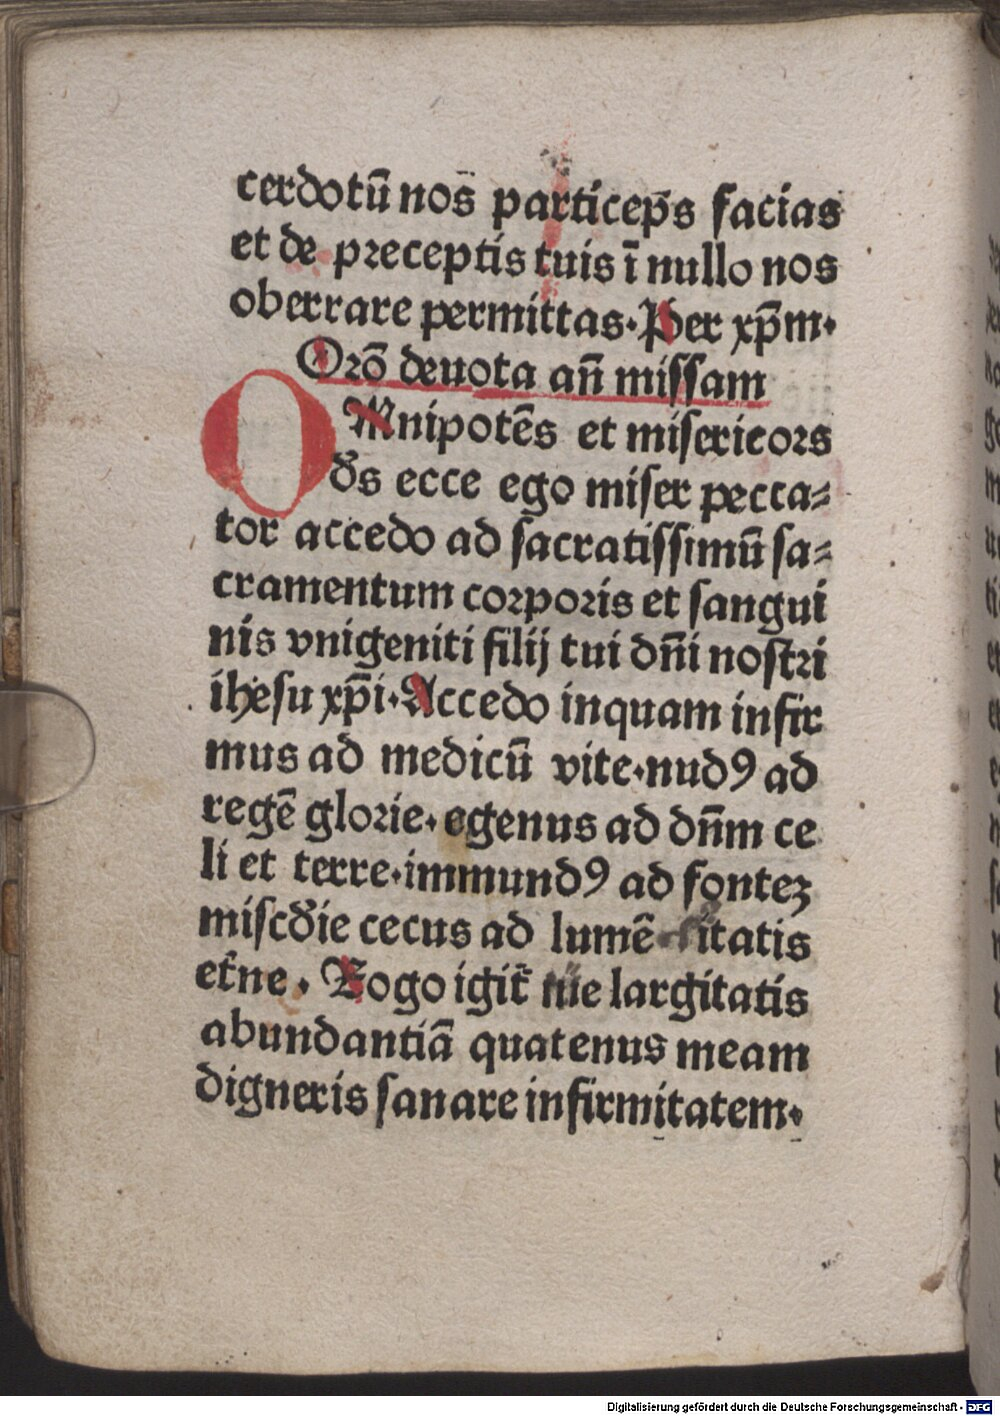 cerdotū nos̄ particep̄s facias
et de preceptis tuis ī nullo nos
oberrare permittas. Per xp̄m.
Orō deuota an̄ missam
OMnipotēs et misericors
ds̄ ecce ego miser pecca⸗
tor accedo ad sacratissimū sa⸗
cramentum corporis et sangui
nis vnigeniti filij tui dn̄i nostri
ihesu xp̄i. Accedo inquam infir
mus ad medicū vite. nudꝰ ad
regē glorie. egenus ad dn̄m ce
li et terre. immundꝰ ad fontez
misc̄die cecus ad lumē itatis
et̄ne. Rogo igit̄ tue largitatis
abundantiā quatenus meam
digneris sanare infirmitatem.
Digitalisierung gefördert durch die Deutsche Forschungsgemeinschaft - DFG